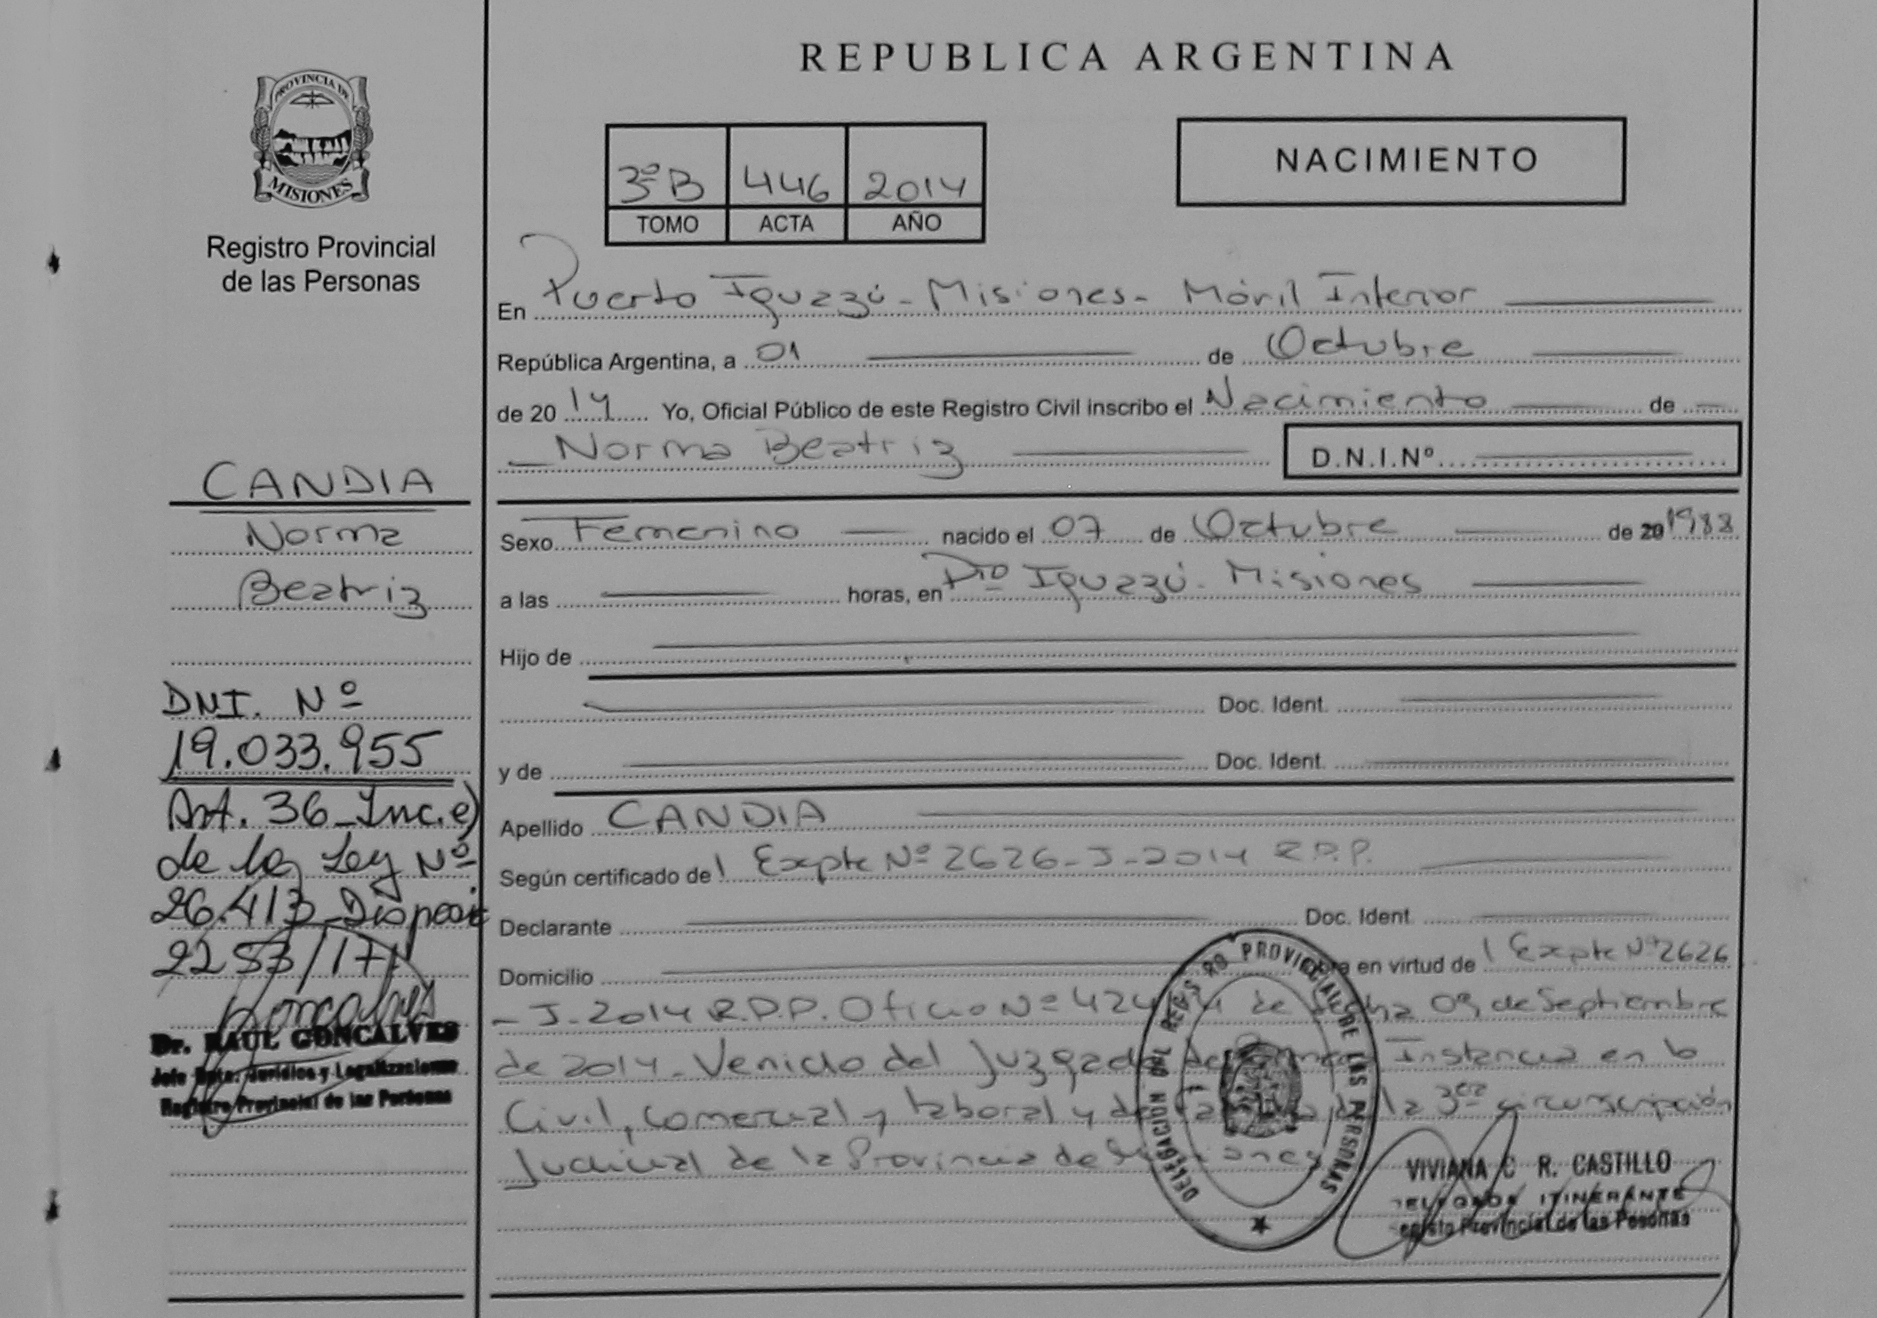 REPUBLICA ARGENTINA
PROVINCIA DE
MISIONES
Registro Provincial
de las Personas
3º B 446 2014
TOMO ACTA AÑO
NACIMIENTO
En Puerto Iguazú - Misiones - Móvil Interior
República Argentina, a 01 de Octubre
de 2014 Yo, Oficial Público de este Registro Civil inscribo el Nacimiento de
Norma Beatriz D.N.I.Nº
Sexo Femenino nacido el 07 de Octubre de 20 1988
a las horas, en Pto Iguazú - Misiones
Hijo de
Doc. Ident.
y de Doc. Ident.
Apellido CANDIA
Según certificado de l Expte Nº 2626 - J - 2014 R.P.P.
Declarante Doc. Ident.
Domicilio en virtud de l Expte Nº 2626
- J - 2014 R.P.P. Oficio Nº de fecha 09 de Septiembre
de 2014 - Venido del Juzgado de Primera Instancia en lo
Civil, Comercial y laboral y de Familia de la 3era circunscripción
Judicial de la Provincia de Misiones
CANDIA
Norma
Beatriz
DNI. Nº
19.033.955
Art. 36 - Inc. e)
de la Ley Nº
26.413 - Disposic
Goncalves
Dr. RAUL GONCALVES
Jefe Dpto. Jurídico y Legalizaciones
Registro Provincial de las Personas
DELEGACION DEL REGISTRO PROVINCIAL DE LAS PERSONAS
VIVIANA C R. CASTILLO
ITINERANTE
Provincial de las Pesonas